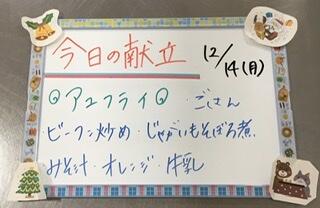 今日の献立 12/14(月)
◎アユフライ◎ ・ごはん
ビーフン炒め・じゃがいもそぼろ煮
みそ汁・オレンジ・牛乳